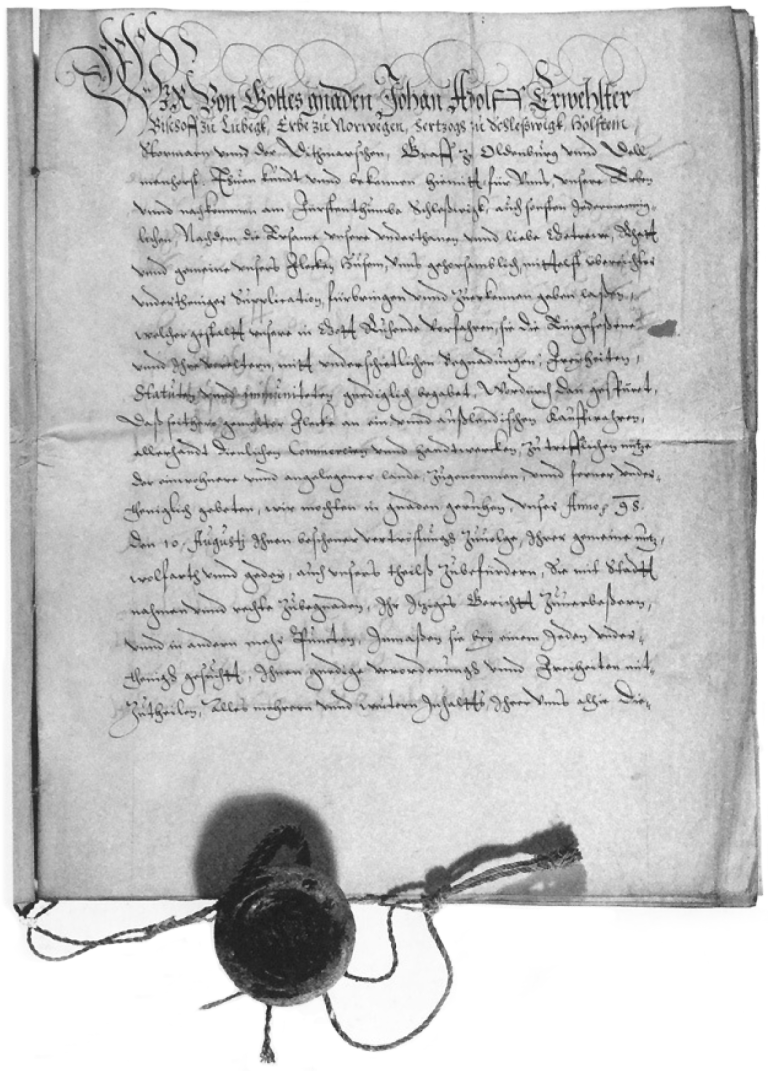 WIR Von Gottes gnaden Johan Adolff Erwehlter
Bischoff zu Lübegk, Erbe zu Norwegen, Hertzogk zu Schleßwigk, Holstein,
Stormarn vnnd der Dithmarschen, Graff zu Oldenburg vnnd Dell-
menhorst, Thuen kundt vnnd bekennen hiemitt für Vnns, vnsere Erben
vnnd nachkommen am Fürstenthumbe Schleßwigk, auch sonsten Jedermennig-
lichen, Nachdem die Ersame vnsere vnderthanen vnnd liebe Getrewe, Rhatt
vnnd gemeine vnsers Flecken Husum, vnns gehorsamblich, mittelst vberreichter
vndertheniger Supplication, fürbringen vnnd zuerkennen geben laßen,
welcher gestaltt vnsere in Gott Ruhende Vorfahren, sie die Eingeseßene
vnnd Ihre vorelttern, mitt vnderschietlichen Begnadungen, Freyheiten,
Statuten vnnd Immuniteten gnediglich begabet, Wordurch dan gespüret,
Daß seithero gemelter Flecke an ein vnnd außlendischen Kauffwahren,
allerhandt dienlichen Commercien vnnd Handtwercken, zu trefflichen nütze
der einwohnere vnnd angelegener lande, zugenommen, vnnd ferner vnder-
theniglich gebeten, wir mochten in gnaden geruhen, vnser Anno 98.
den 10. Augustj Ihnen beschener vertröstungk zuuolge, Ihrer gemeine nutz,
wolfarth vnnd gedey, auch vnsers theilß zubefürdern, Sie mit Stadtt
nahmen vnnd rechte zubegnaden, Ihr Itziges Gerichtt zuuerbeßern,
vnnd in andern mehr Puncten, Inmaßen sie bey einem Jeden vnder-
thenigh gesuchtt, Ihnen gnedige verordenungh vnnd Freyheiten mit-
zutheilen, Alles mehrern vnnd weitern Inhaltts, Ihrer vnns alhie